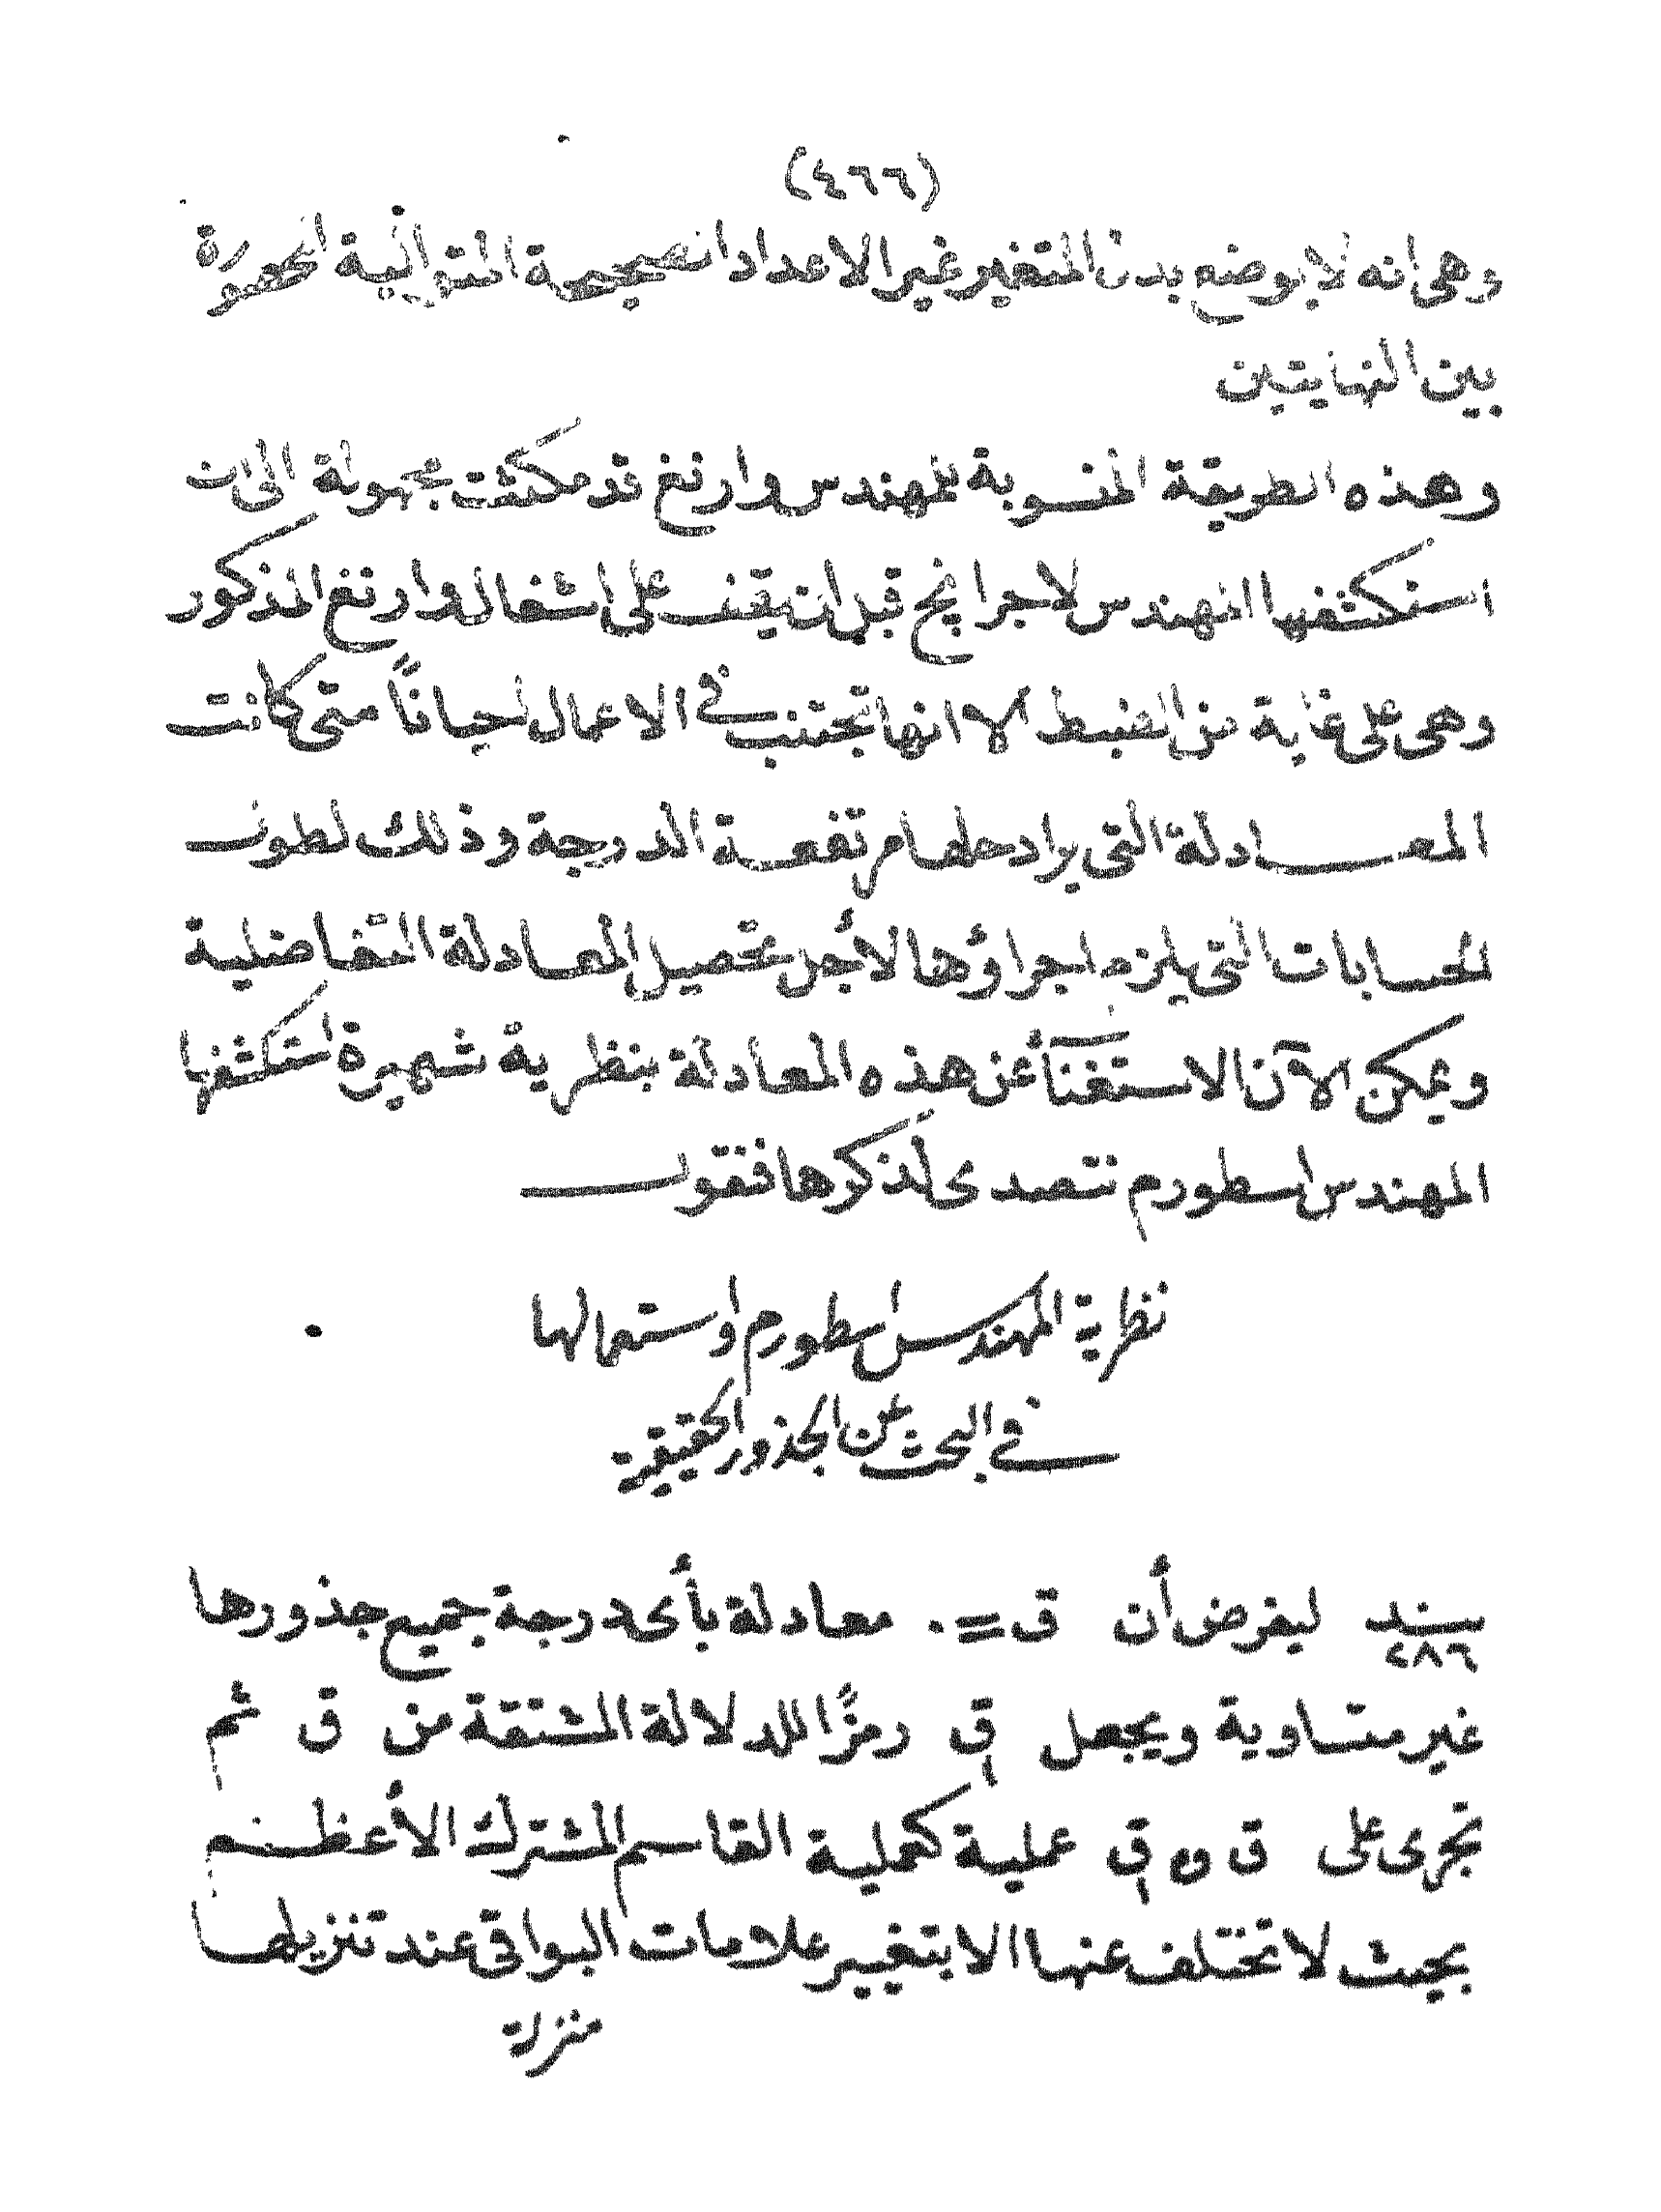 (٤٦٦)
وهى انه لا يوضع بدل المتغير غير الاعداد الصحيحة المتوالية المحصورة
بين النهايتين
وهذه الطريقة المنسوبة للمهندس وارنغ قد مكثت مجهولة الى ان
استكشفها المهندس لاجرانج قبل ان يقف على اشغال وارنغ المذكور
وهى على غاية من الضبط الا انها تجتنب فى الاعمال احيانًا متى كانت
المعادلة التى يراد حلها مرتفعة الدرجة وذلك لطول
الحسابات التى يلزم اجراؤها لأجل تحصيل المعادلة التفاضلية
ويمكن الآن الاستغنآء عن هذه المعادلة بنظرية شهيرة استكشفها
المهندس اسطورم نتصدى لذكرها فنقول
نظرية المهندس اسطورم واستعمالها
فى البحث عن الجذور الحقيقية
بند ٢٨٦ ليفرض أن ق = ٠ معادلة بأى درجة جميع جذورها
غير متساوية ويجعل قَ رمزًا للدلالة المشتقة من ق ثم
تجرى على ق و ق عملية كعملية القاسم المشترك الأعظم
بحيث لا تختلف عنها الا بتغيير علامات البواقى عند تنزيلها
منزلة